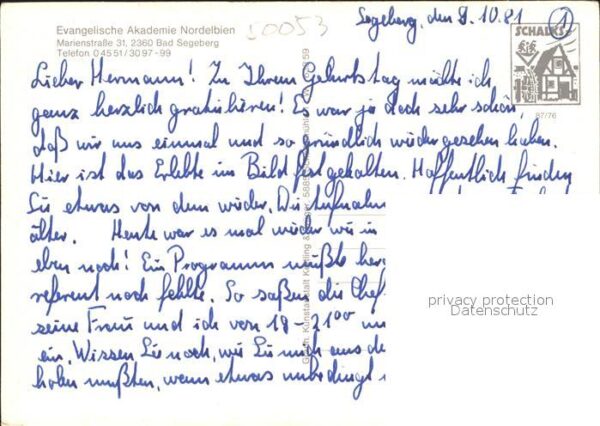 50053
Segeberg, den 8.10.81
1
Evangelische Akademie Nordelbien
Marienstraße 31, 2360 Bad Segeberg
Telefon 04551/3097-99
SCHALKS
87/76
Lieber Hermann! Zu Ihrem Geburtstag möchte ich
ganz herzlich gratulieren! Es war ja doch sehr schön,
daß wir uns einmal und so gründlich wiedergesehen haben.
Hier ist das Erlebte im Bild festgehalten. Hoffentlich finden
Sie etwas von dem wieder. Die
älter. Heute war es mal wieder wie in
eben noch! Ein Programm mußte her
referent noch fehlte. So saßen die Chef
seine Frau und ich von 18-21⁰⁰
ein. Wissen Sie noch, wie Sie mich aus de
holen mußten, wenn etwas unbedingt
privacy protection
Datenschutz